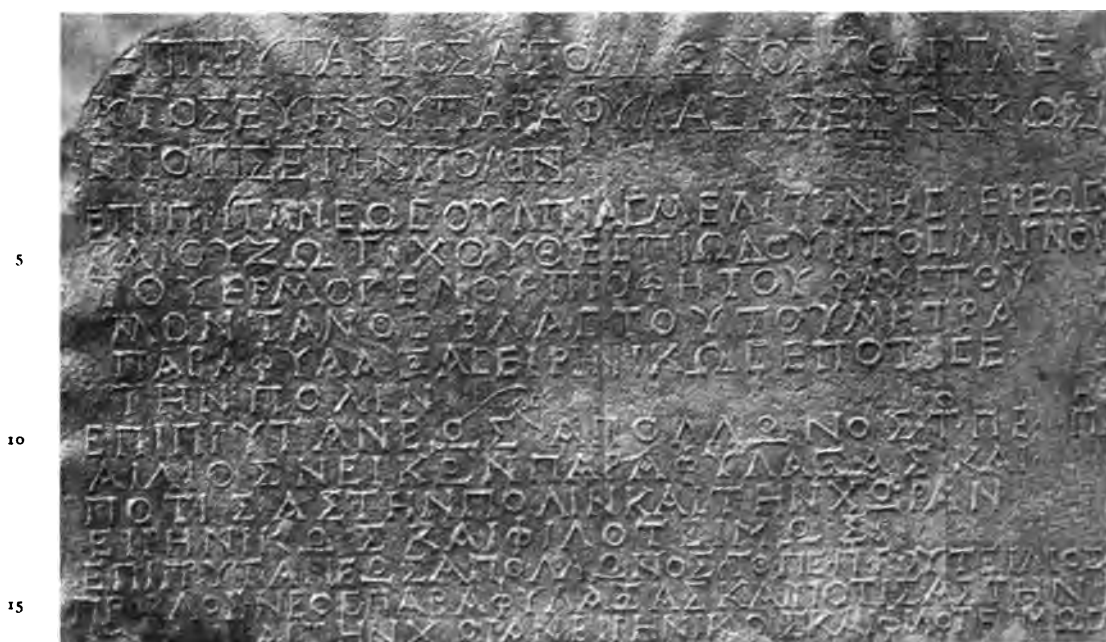 ΕΠΙ ΠΡΥΤΑΝΕΟΣ ΑΠΟΛΛΩΝΟΣ ΤΟ
ΠΑΡΑΦΥΛΑΞΑΣ ΕΙΡΗΝΙΚΩΣ
ΕΠΟΤΙΣΕ ΤΗΝ ΠΟΛΙΝ
ΕΠΙ ΠΡΥΤΑΝΕΩΣ ΟΥΛΠΙΑΣ ΜΕΛΙΤΙΝΗΣ ΙΕΡΕΩΣ
5 ΓΑΙΟΥ ΖΩΤΙΧΟΥ ΘΕΣΠΙΩΔΟΥ ΜΑΓΝΟΥ
ΤΟΥ ΕΡΜΟΓΕΝΟΥΣ ΠΡΟΦΗΤΟΥ
ΜΟΝΤΑΝΟΣ ΒΛΑΣΤΟΥ ΤΟΥ ΜΗΤΡΑ
ΠΑΡΑΦΥΛΑΞΑΣ ΕΙΡΗΝΙΚΩΣ ΕΠΟΤΙΣΕ
ΤΗΝ ΠΟΛΙΝ
10 ΕΠΙ ΠΡΥΤΑΝΕΩΣ ΑΠΟΛΛΩΝΟΣ
ΑΙΛΙΟΣ ΝΕΙΚΩΝ ΠΑΡΑΦΥΛΑΞΑΣ ΚΑΙ
ΠΟΤΙΣΑΣ ΤΗΝ ΠΟΛΙΝ ΚΑΙ ΤΗΝ ΧΩΡΑΝ
ΕΙΡΗΝΙΚΩΣ ΚΑΙ ΦΙΛΟΤΕΙΜΩΣ
ΕΠΙ ΠΡΥΤΑΝΕΩΣ ΑΠΟΛΛΩΝΟΣ
15 ΝΕΟΣ ΠΑΡΑΦΥΛΑΞΑΣ ΚΑΙ ΠΟΤΙΣΑΣ ΤΗΝ
ΤΗΝ ΧΩΡΑΝ ΕΙΡΗΝΙΚΩΣ ΚΑΙ ΦΙΛΟΤΕΙΜΩΣ